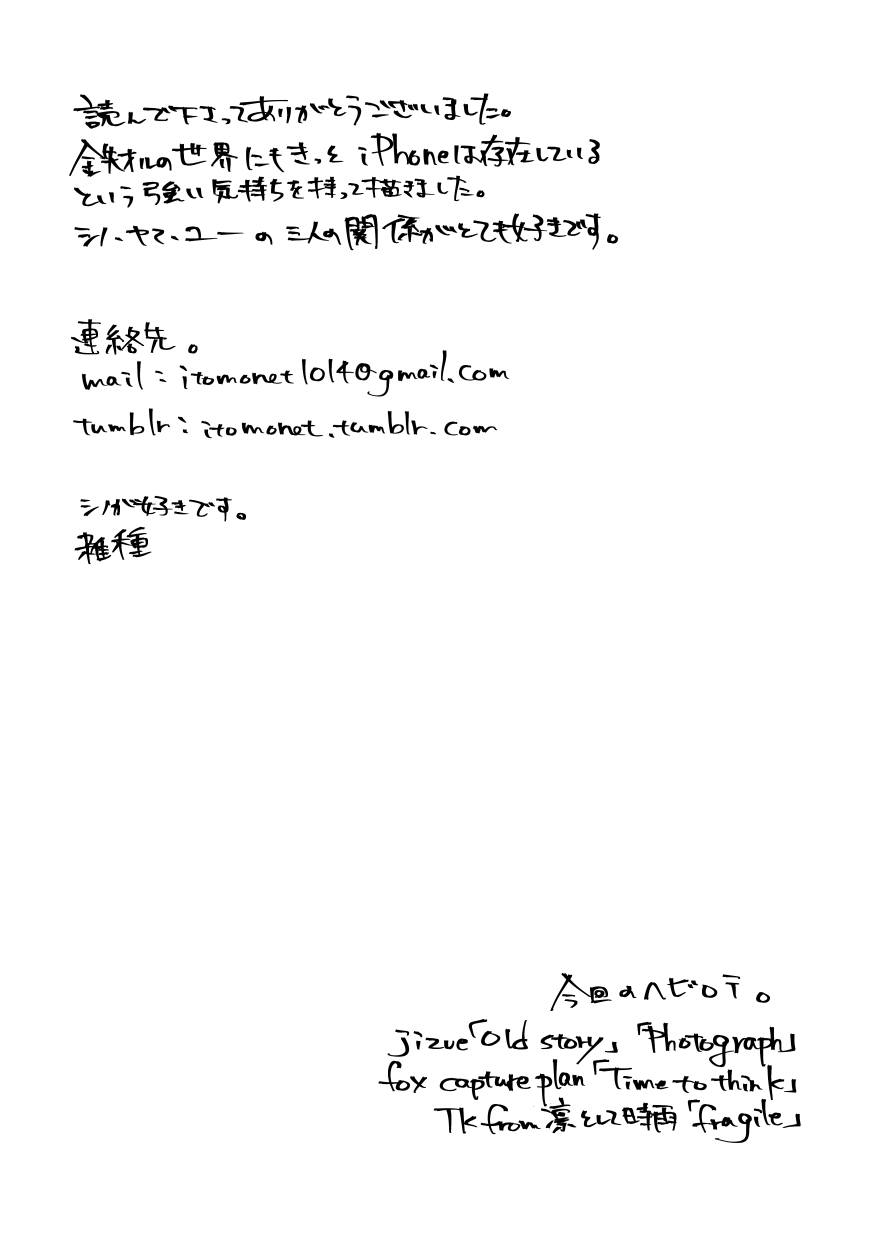 読んで下さってありがとうございました。
鉄オルの世界にもきっと iPhoneは存在している
という強い気持ちを持って描きました。
シノ、ヤマ、ユーの三人の関係がとても好きです。
連絡先。
mail:itomonet1014@gmail.com
tumblr:itomonet.tumblr.com
シノが好きです。
雑種
今回のヘビロテ。
jizue「Old story」「Photograph」
fox capture plan「Time to think」
TK from 凛として時雨「fragile」